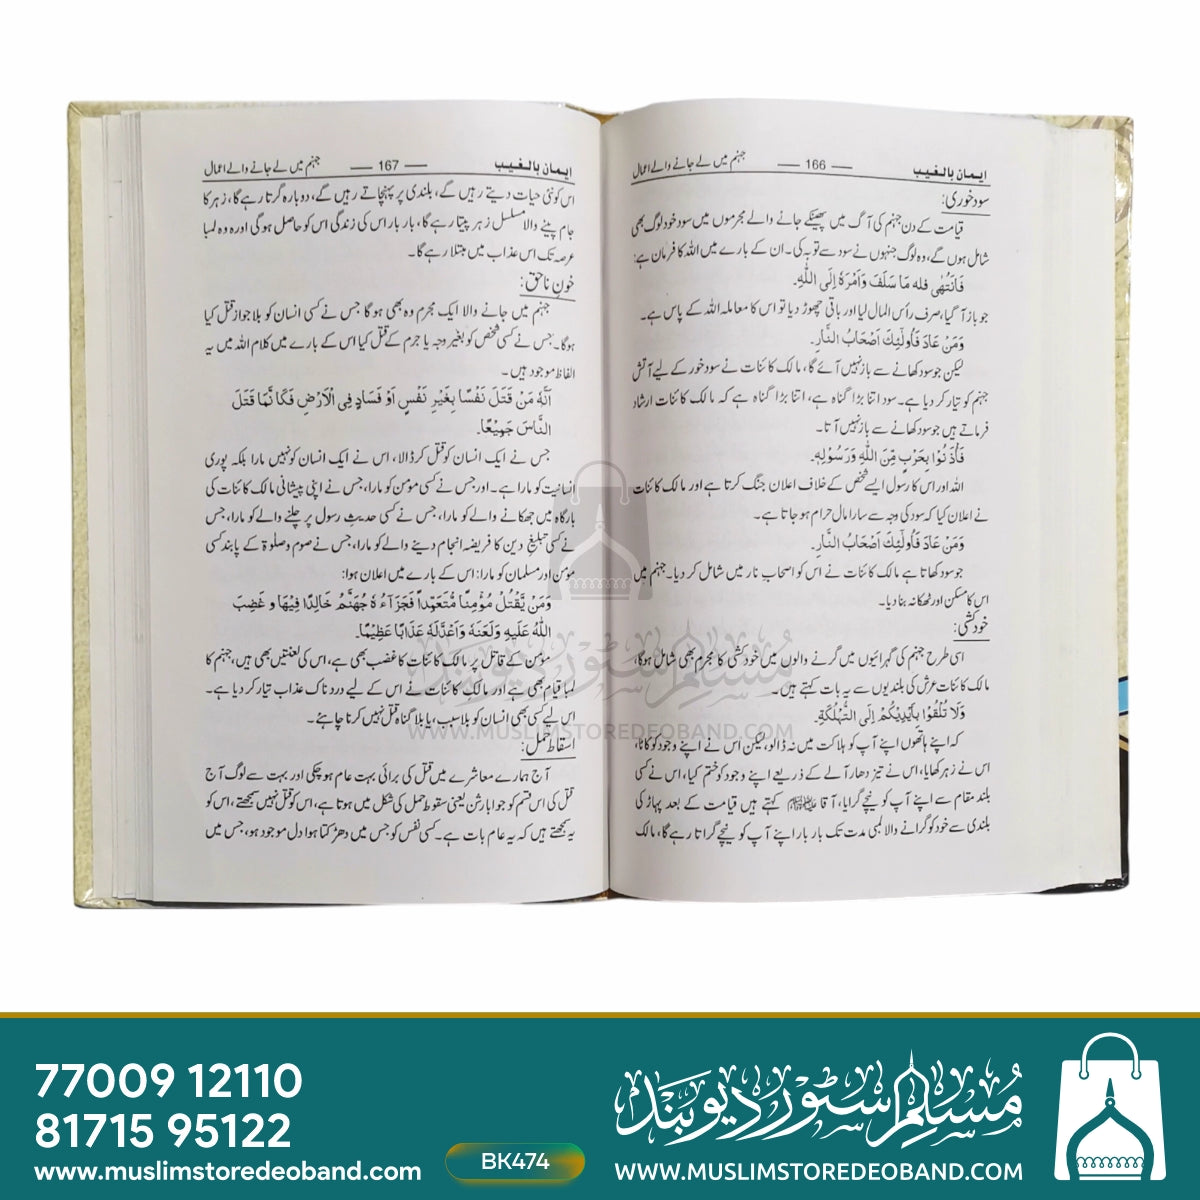 ایمان بالغیب — 166 — جہنم میں لے جانے والے اعمال
سود خوری:
قیامت کے دن جہنم کی آگ میں پھینکے جانے والے مجرموں میں سود خود لوگ بھی
شامل ہوں گے، وہ لوگ جنہوں نے سود سے توبہ کی۔ ان کے بارے میں اللہ کا فرمان ہے:
فَانْتَهٰى فله مَا سَلَفَ وَاَمْرُهٗ اِلَى اللّٰهِ۔
جو باز آ گیا، صرف رأس المال لیا اور باقی چھوڑ دیا تو اس کا معاملہ اللہ کے پاس ہے۔
وَمَنْ عَادَ فَاُولٰٓئِكَ اَصْحَابُ النَّارِ۔
لیکن جو سود کھانے سے باز نہیں آئے گا، مالک کائنات نے سود خور کے لیے آتش
جہنم کو تیار کر دیا ہے۔ سود اتنا بڑا گناہ ہے، اتنا بڑا گناہ ہے کہ مالک کائنات ارشاد
فرماتے ہیں جو سود کھانے سے باز نہیں آتا۔
فَاْذَنُوْا بِحَرْبٍ مِّنَ اللّٰهِ وَرَسُوْلِهٖ۔
اللہ اور اس کا رسول ایسے شخص کے خلاف اعلان جنگ کرتا ہے اور مالک کائنات
نے اعلان کیا کہ سود کی وجہ سے سارا مال حرام ہو جاتا ہے۔
وَمَنْ عَادَ فَاُولٰٓئِكَ اَصْحَابُ النَّارِ۔
جو سود کھاتا ہے مالک کائنات نے اس کو اصحاب نار میں شامل کر دیا۔ جہنم میں
اس کا مسکن اور ٹھکانہ بنا دیا۔
خودکشی:
اسی طرح جہنم کی گہرائیوں میں گرنے والوں میں خودکشی کا مجرم بھی شامل ہوگا،
مالک کائنات عرش کی بلندیوں سے یہ بات کہتے ہیں۔
وَلَا تُلْقُوْا بِاَيْدِيْكُمْ اِلَى التَّهْلُكَةِ۔
کہ اپنے ہاتھوں اپنے آپ کو ہلاکت میں نہ ڈالو، لیکن اس نے اپنے وجود کو کاٹا،
اس نے زہر کھایا، اس نے تیز دھار آلے کے ذریعے اپنے وجود کو ختم کیا، اس نے کسی
بلند مقام سے اپنے آپ کو نیچے گرایا، آقا ﷺ کہتے ہیں قیامت کے بعد پہاڑ کی
بلندی سے خود کو گرانے والا لمبی مدت تک بار بار اپنے آپ کو نیچے گراتا رہے گا، مالک
ایمان بالغیب — 167 — جہنم میں لے جانے والے اعمال
اس کو نئی حیات دیتے رہیں گے، بلندی پر پہنچاتے رہیں گے، دوبارہ گرتا رہے گا، زہر کا
جام پینے والا مسلسل زہر پیتا رہے گا، بار بار اس کی زندگی اس کو حاصل ہوگی اور وہ لمبا
عرصہ تک اس عذاب میں مبتلا رہے گا۔
خونِ ناحق:
جہنم میں جانے والا ایک مجرم وہ بھی ہوگا جس نے کسی انسان کو بلا جواز قتل کیا
ہوگا۔ جس نے کسی شخص کو بغیر وجہ یا جرم کے قتل کیا اس کے بارے میں کلام اللہ میں یہ
الفاظ موجود ہیں۔
اَنَّهٗ مَنْ قَتَلَ نَفْسًا بِغَيْرِ نَفْسٍ اَوْ فَسَادٍ فِى الْاَرْضِ فَكَاَنَّمَا قَتَلَ
النَّاسَ جَمِيْعًا۔
جس نے ایک انسان کو قتل کر ڈالا، اس نے ایک انسان کو نہیں مارا بلکہ پوری
انسانیت کو مارا ہے۔ اور جس نے کسی مؤمن کو مارا، جس نے اپنی پیشانی مالک کائنات کی
بارگاہ میں جھکانے والے کو مارا، جس نے کسی حدیثِ رسول پر چلنے والے کو مارا، جس
نے کسی تبلیغِ دین کا فریضہ انجام دینے والے کو مارا، جس نے صوم وصلوٰۃ کے پابند کسی
مؤمن اور مسلمان کو مارا: اس کے بارے میں اعلان ہوا:
وَمَنْ يَّقْتُلْ مُؤْمِنًا مُتَعَمِّداً فَجَزَآءُهٗ جَهَنَّمُ خَالِدًا فِيْهَا وغَضِبَ
اللّٰهُ عَلَيْهِ وَلَعَنَهٗ وَاَعَدَّلَهٗ عَذَابًا عَظِيْمًا۔
مؤمن کے قاتل پر مالک کائنات کا غضب بھی ہے، اس کی لعنتیں بھی ہیں، جہنم کا
لمبا قیام بھی ہے اور مالکِ کائنات نے اس کے لیے دردناک عذاب تیار کر دیا ہے۔
اس لیے کسی بھی انسان کو بلا سبب، یا بلا گناہ قتل نہیں کرنا چاہئے۔
اسقاط حمل:
آج ہمارے معاشرے میں قتل کی برائی بہت عام ہو چکی اور بہت سے لوگ آج
قتل کی اس قسم کو جو ابارشن یعنی سقوط حمل کی شکل میں ہوتا ہے، اس کو قتل نہیں سمجھتے، اس کو
یہ سمجھتے ہیں کہ یہ عام بات ہے۔ کسی نفس کو جس میں دھڑکتا ہوا دل موجود ہو، جس میں
مسلم سٹور دیوبند
WWW.MUSLIMSTOREDEOBAND.COM
77009 12110
81715 95122
www.muslimstoredeoband.com
BK474
مسلم سٹور دیوبند
WWW.MUSLIMSTOREDEOBAND.COM